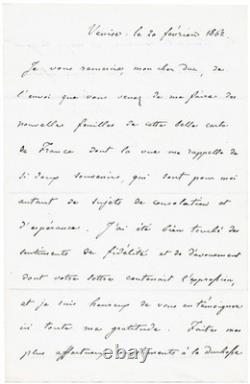 Venise. le 20 février 1862.
Je vous remercie, mon cher duc, de
l'envoi que vous venez de me faire des
nouvelles feuilles de cette belle carte
de France dont la vue me rappelle de
si doux souvenirs, qui sont pour moi
autant de sujets de consolation et
d'espérance. J'ai été bien touché des
sentiments de fidélité et de dévouement
dont votre lettre contenait l'expression,
et je suis heureux de vous en témoigner
ici toute ma gratitude. Faites mes
plus affectueux compliments à la duchesse
© worthpoint